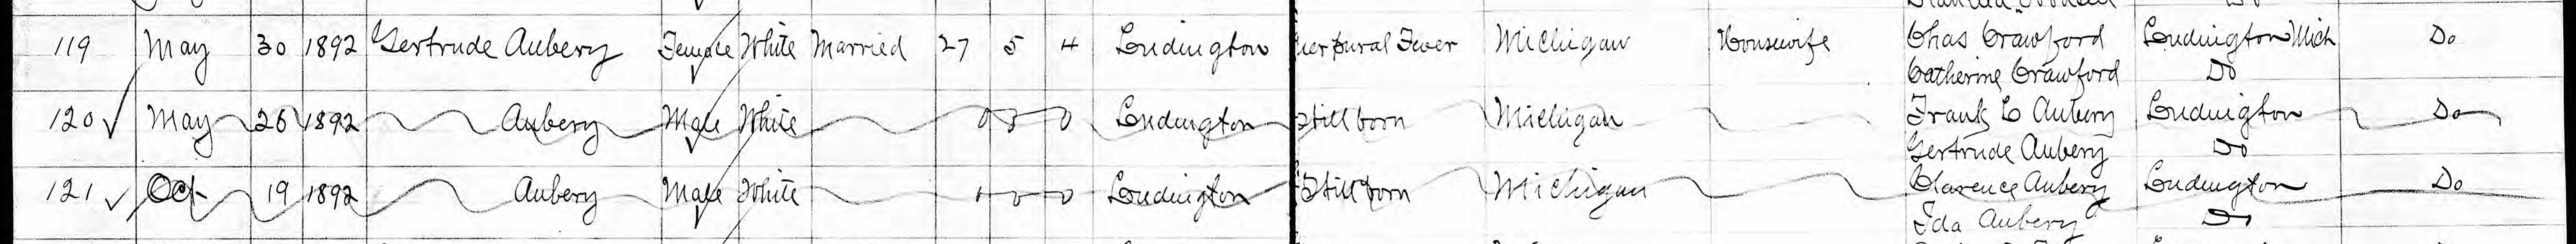 119 May 30 1892 Gertrude Aubery Female White Married 27 5 4 Ludington uerpural Fever Michigan Housewife Chas Crawford Ludington Mich Do
Catherine Crawford Do
120 May 26 1892 Aubery Male White 0 0 0 Ludington Still born Michigan Frank C Aubery Ludington Do
Gertrude Aubery Do
121 Oct 19 1892 Aubery Male White 0 0 Ludington Still born Michigan Clarence Aubery Ludington Do
Ida Aubery Do